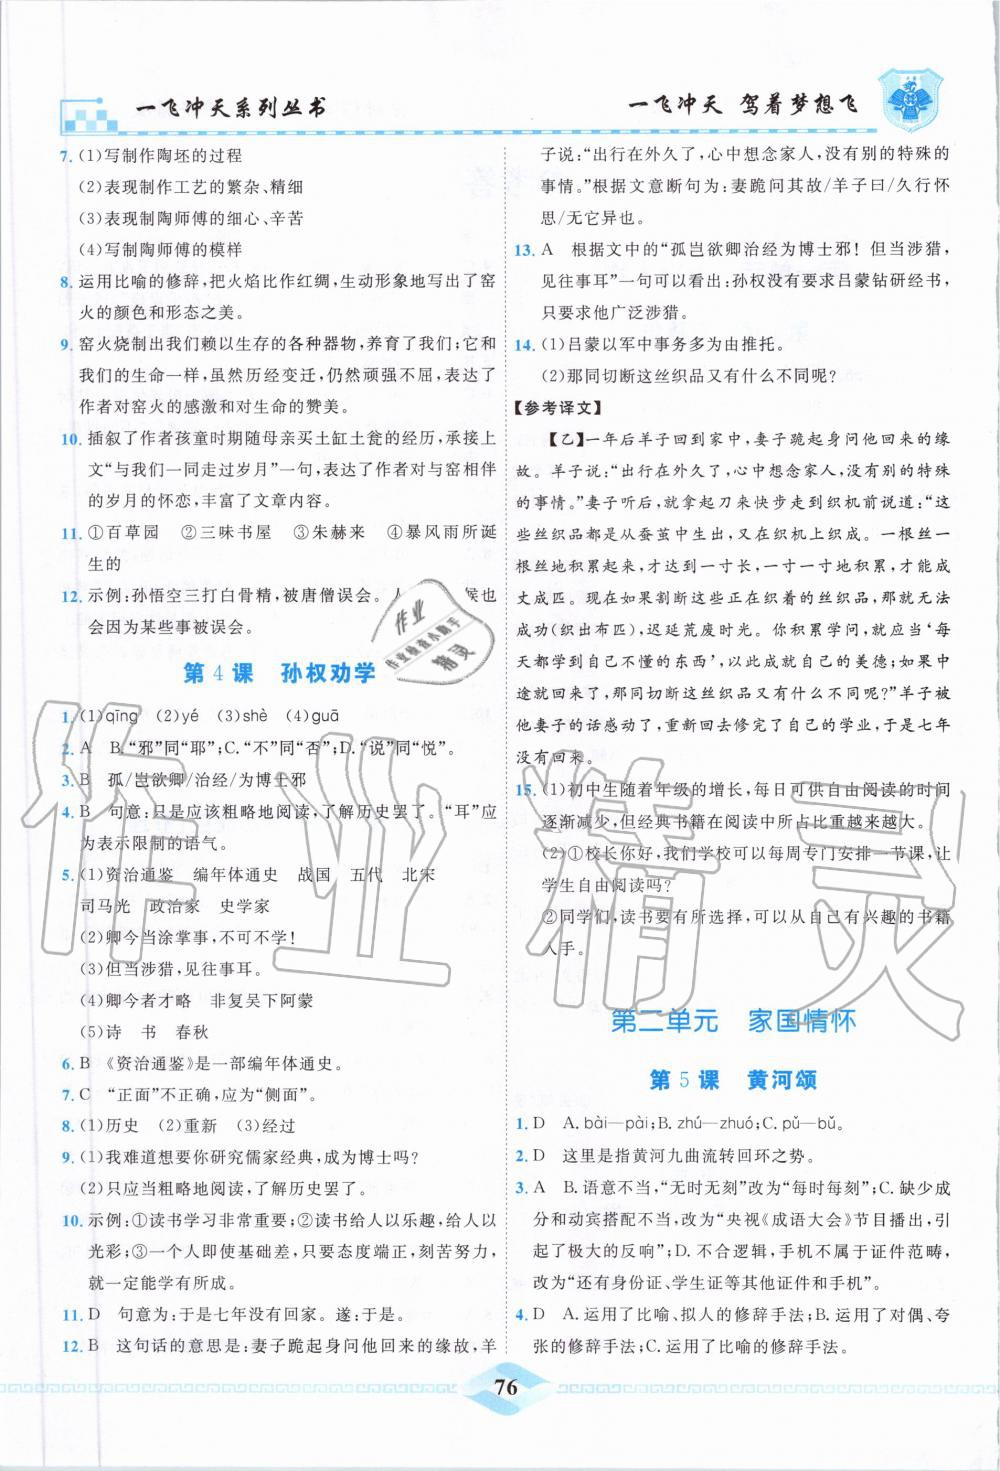 一飞冲天系列丛书
一飞冲天 驾着梦想飞
7. (1)写制作陶坯的过程
(2)表现制作工艺的繁杂、精细
(3)表现制陶师傅的细心、辛苦
(4)写制陶师傅的模样
8. 运用比喻的修辞,把火焰比作红绸,生动形象地写出了窑
火的颜色和形态之美。
9. 窑火烧制出我们赖以生存的各种器物,养育了我们;它和
我们的生命一样,虽然历经变迁,仍顽强不屈,表达了
作者对窑火的感激和对生命的赞美。
10. 插叙了作者孩童时期随母亲买土缸土瓮的经历,承接上
文“与我们一同走过岁月”一句,表达了作者对与窑相伴
的岁月的怀恋,丰富了文章内容。
11. ①百草园 ②三味书屋 ③朱赫来 ④暴风雨所诞
生的
12. 示例:孙悟空三打白骨精,被唐僧误会。人 候也
会因为某些事被误会。
第 4 课 孙权劝学
1. (1)qīng (2)yé (3)shè (4)guā
2. A B.“邪”同“耶”;C.“不”同“否”;D.“说”同“悦”。
3. B 孤/岂欲卿/治经/为博士邪
4. B 句意:只是应该粗略地阅读,了解历史罢了。“耳”应
为表示限制的语气。
5. (1)资治通鉴 编年体通史 战国 五代 北宋
司马光 政治家 史学家
(2)卿今当涂掌事,不可不学!
(3)但当涉猎,见往事耳。
(4)卿今者才略 非复吴下阿蒙
(5)诗 书 春秋
6. B 《资治通鉴》是一部编年体通史。
7. C “正面”不正确,应为“侧面”。
8. (1)历史 (2)重新 (3)经过
9. (1)我难道想要你研究儒家经典,成为博士吗?
(2)只应当粗略地阅读,了解历史罢了。
10. 示例:①读书学习非常重要;②读书给人以乐趣,给人以
光彩;③一个人即使基础差,只要态度端正,刻苦努力,
就一定能学有所成。
11. D 句意为:于是七年没有回家。遂:于是。
12. B 这句话的意思是:妻子跪起身问他回来的缘故,羊
子说:“出行在外久了,心中想念家人,没有别的特殊的
事情。”根据文意断句为:妻跪问其故/羊子曰/久行怀
思/无它异也。
13. A 根据文中的“孤岂欲卿治经为博士邪！但当涉猎,
见往事耳”一句可以看出:孙权没有要求吕蒙钻研经书,
只要求他广泛涉猎。
14. (1)吕蒙以军中事务多为由推托。
(2)那同切断这丝织品又有什么不同呢?
【参考译文】
【乙】一年后羊子回到家中,妻子跪起身问他回来的缘
故。羊子说:“出行在外久了,心中想念家人,没有别的特殊
的事情。”妻子听后,就拿起刀来快步走到织机前说道:“这
些丝织品都是从蚕茧中生出,又在织机上织成。一根丝一
根丝地积累起来,才达到一寸长,一寸一寸地积累,才能成
丈成匹。现在如果割断这些正在织着的丝织品,那就无法
成功(织出布匹),迟延荒废时光。你积累学问,就应当‘每
天都学到自己不懂的东西’,以此成就自己的美德;如果中
途就回来了,那同切断这丝织品又有什么不同呢?”羊子
被他妻子的话感动了,重新回去修完了自己的学业,于是七年
没有回来。
15. (1)初中生随着年级的增长,每天可供自由阅读的时间
逐渐减少,但经典书籍在阅读中所占比重越来越大。
(2)①校长你好,我们学校可以每周专门安排一节课,让
学生自由阅读吗?
②同学们,读书要多样化,可以从自己有兴趣的书籍
入手。
第二单元 家国情怀
第 5 课 黄河颂
1. D A. bài—pài;B. zhú—zhuó;C. pǔ—bǔ。
2. D 这里是指黄河九曲流转回环之势。
3. A B. 语意不当,“无时无刻”改为“每时每刻”;C. 缺少成
分和动宾搭配不当,改为“央视《成语大会》节目播出,引
起了极大的反响”;D. 不合逻辑,手机不属于证件范畴,
改为“还有身份证、学生证等其他证件和手机”。
4. D A. 运用了比喻、拟人的修辞手法;B. 运用了对偶、夸
张的修辞手法;C. 运用了比喻的修辞手法。
76
作业
作业检查小助手
精灵
作业精灵